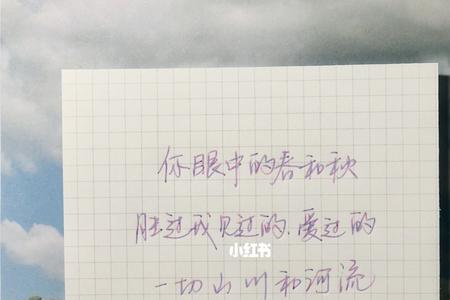 你眼中的春和秋
胜过我见过的、爱过的
小红书
一切山川和河流